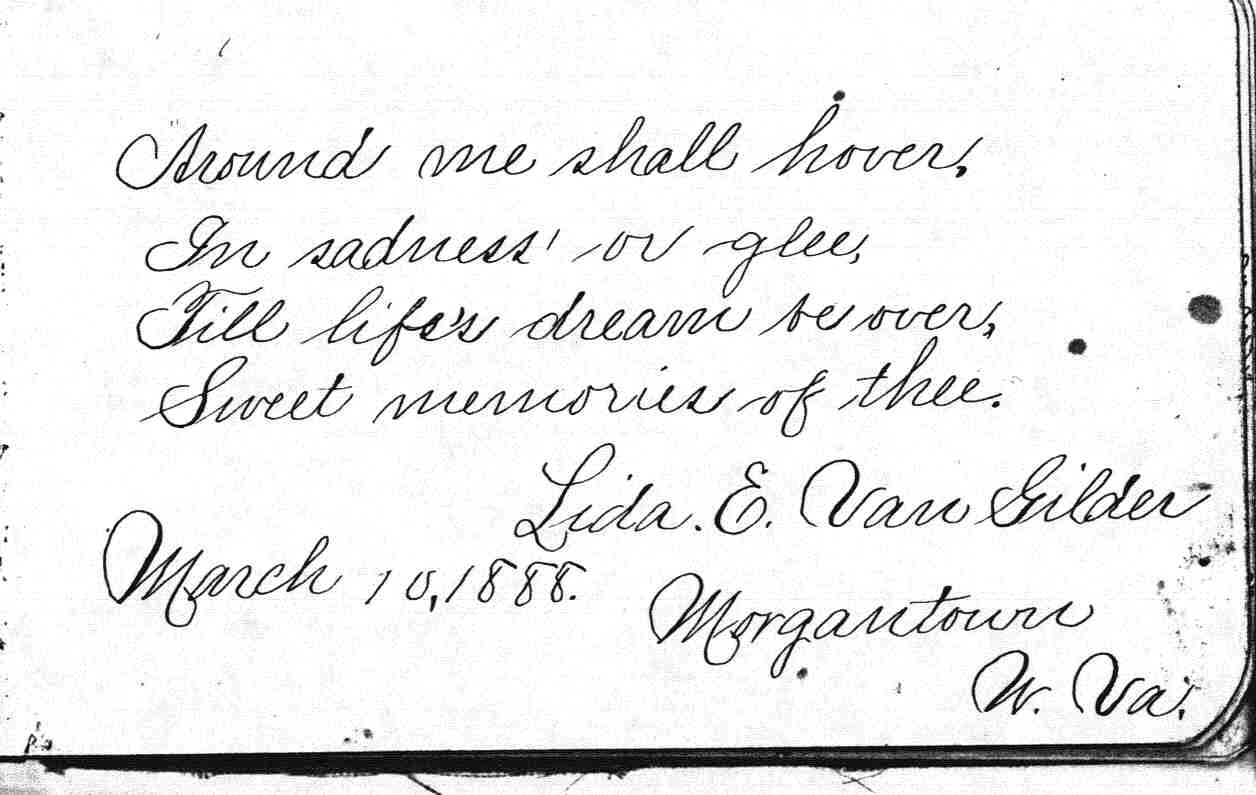 Around me shall hover,
In sadness' or glee,
Till life's dream be over,
Sweet memories of thee.
Lida. E. Van Gilder
March 10, 1888.
Morgantown
W. Va.